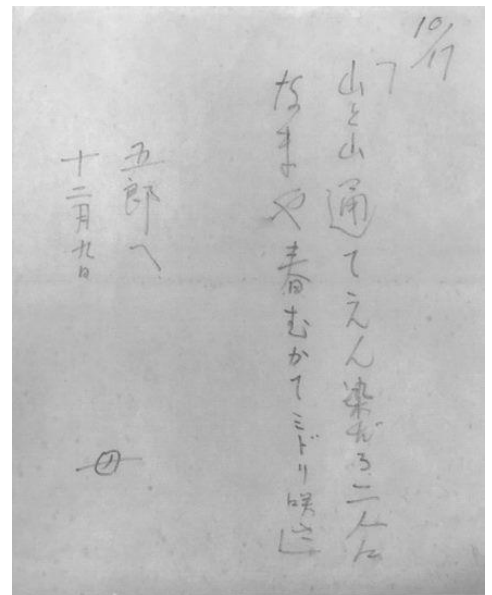 10/17
山と山通てえん染だろ二人に
なまや春むかてミドリ咲
五郎へ
十二月九日